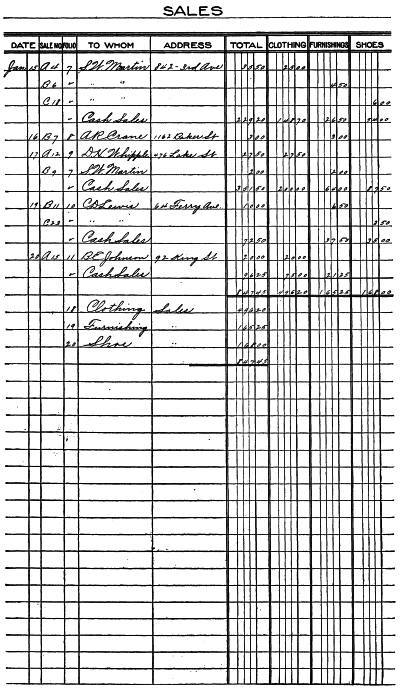 SALES
DATE SALE NO FOLIO TO WHOM ADDRESS TOTAL CLOTHING FURNISHINGS SHOES
Jan 15 A4 7 S.W. Martin 842-3rd Ave 35 50 25 00
B6 " " " 4 50
C18 " " " 6 00
" Cash Sales 229 20 148 70 26 50 54 00
16 B7 8 A.R. Crane 1162 Baker St 3 00 3 00
17 A12 9 D.H. Whipple 476 Lake St 27 50 27 50
B9 7 S.W. Martin 2 00 2 00
" Cash Sales 351 50 200 00 64 00 87 50
19 B11 10 C.D. Lewis 64 Ferry Ave. 10 00 6 50
C22 " " " 3 50
" Cash Sales 72 50 37 50 35 00
20 A15 11 B.E. Johnson 92 King St 20 00 20 00
" Cash Sales 96 25 75 00 21 25
847 45 496 20 165 25 168 00
18 Clothing Sales 496 20
19 Furnishing " 165 25
20 Shoe " 168 00
847 45